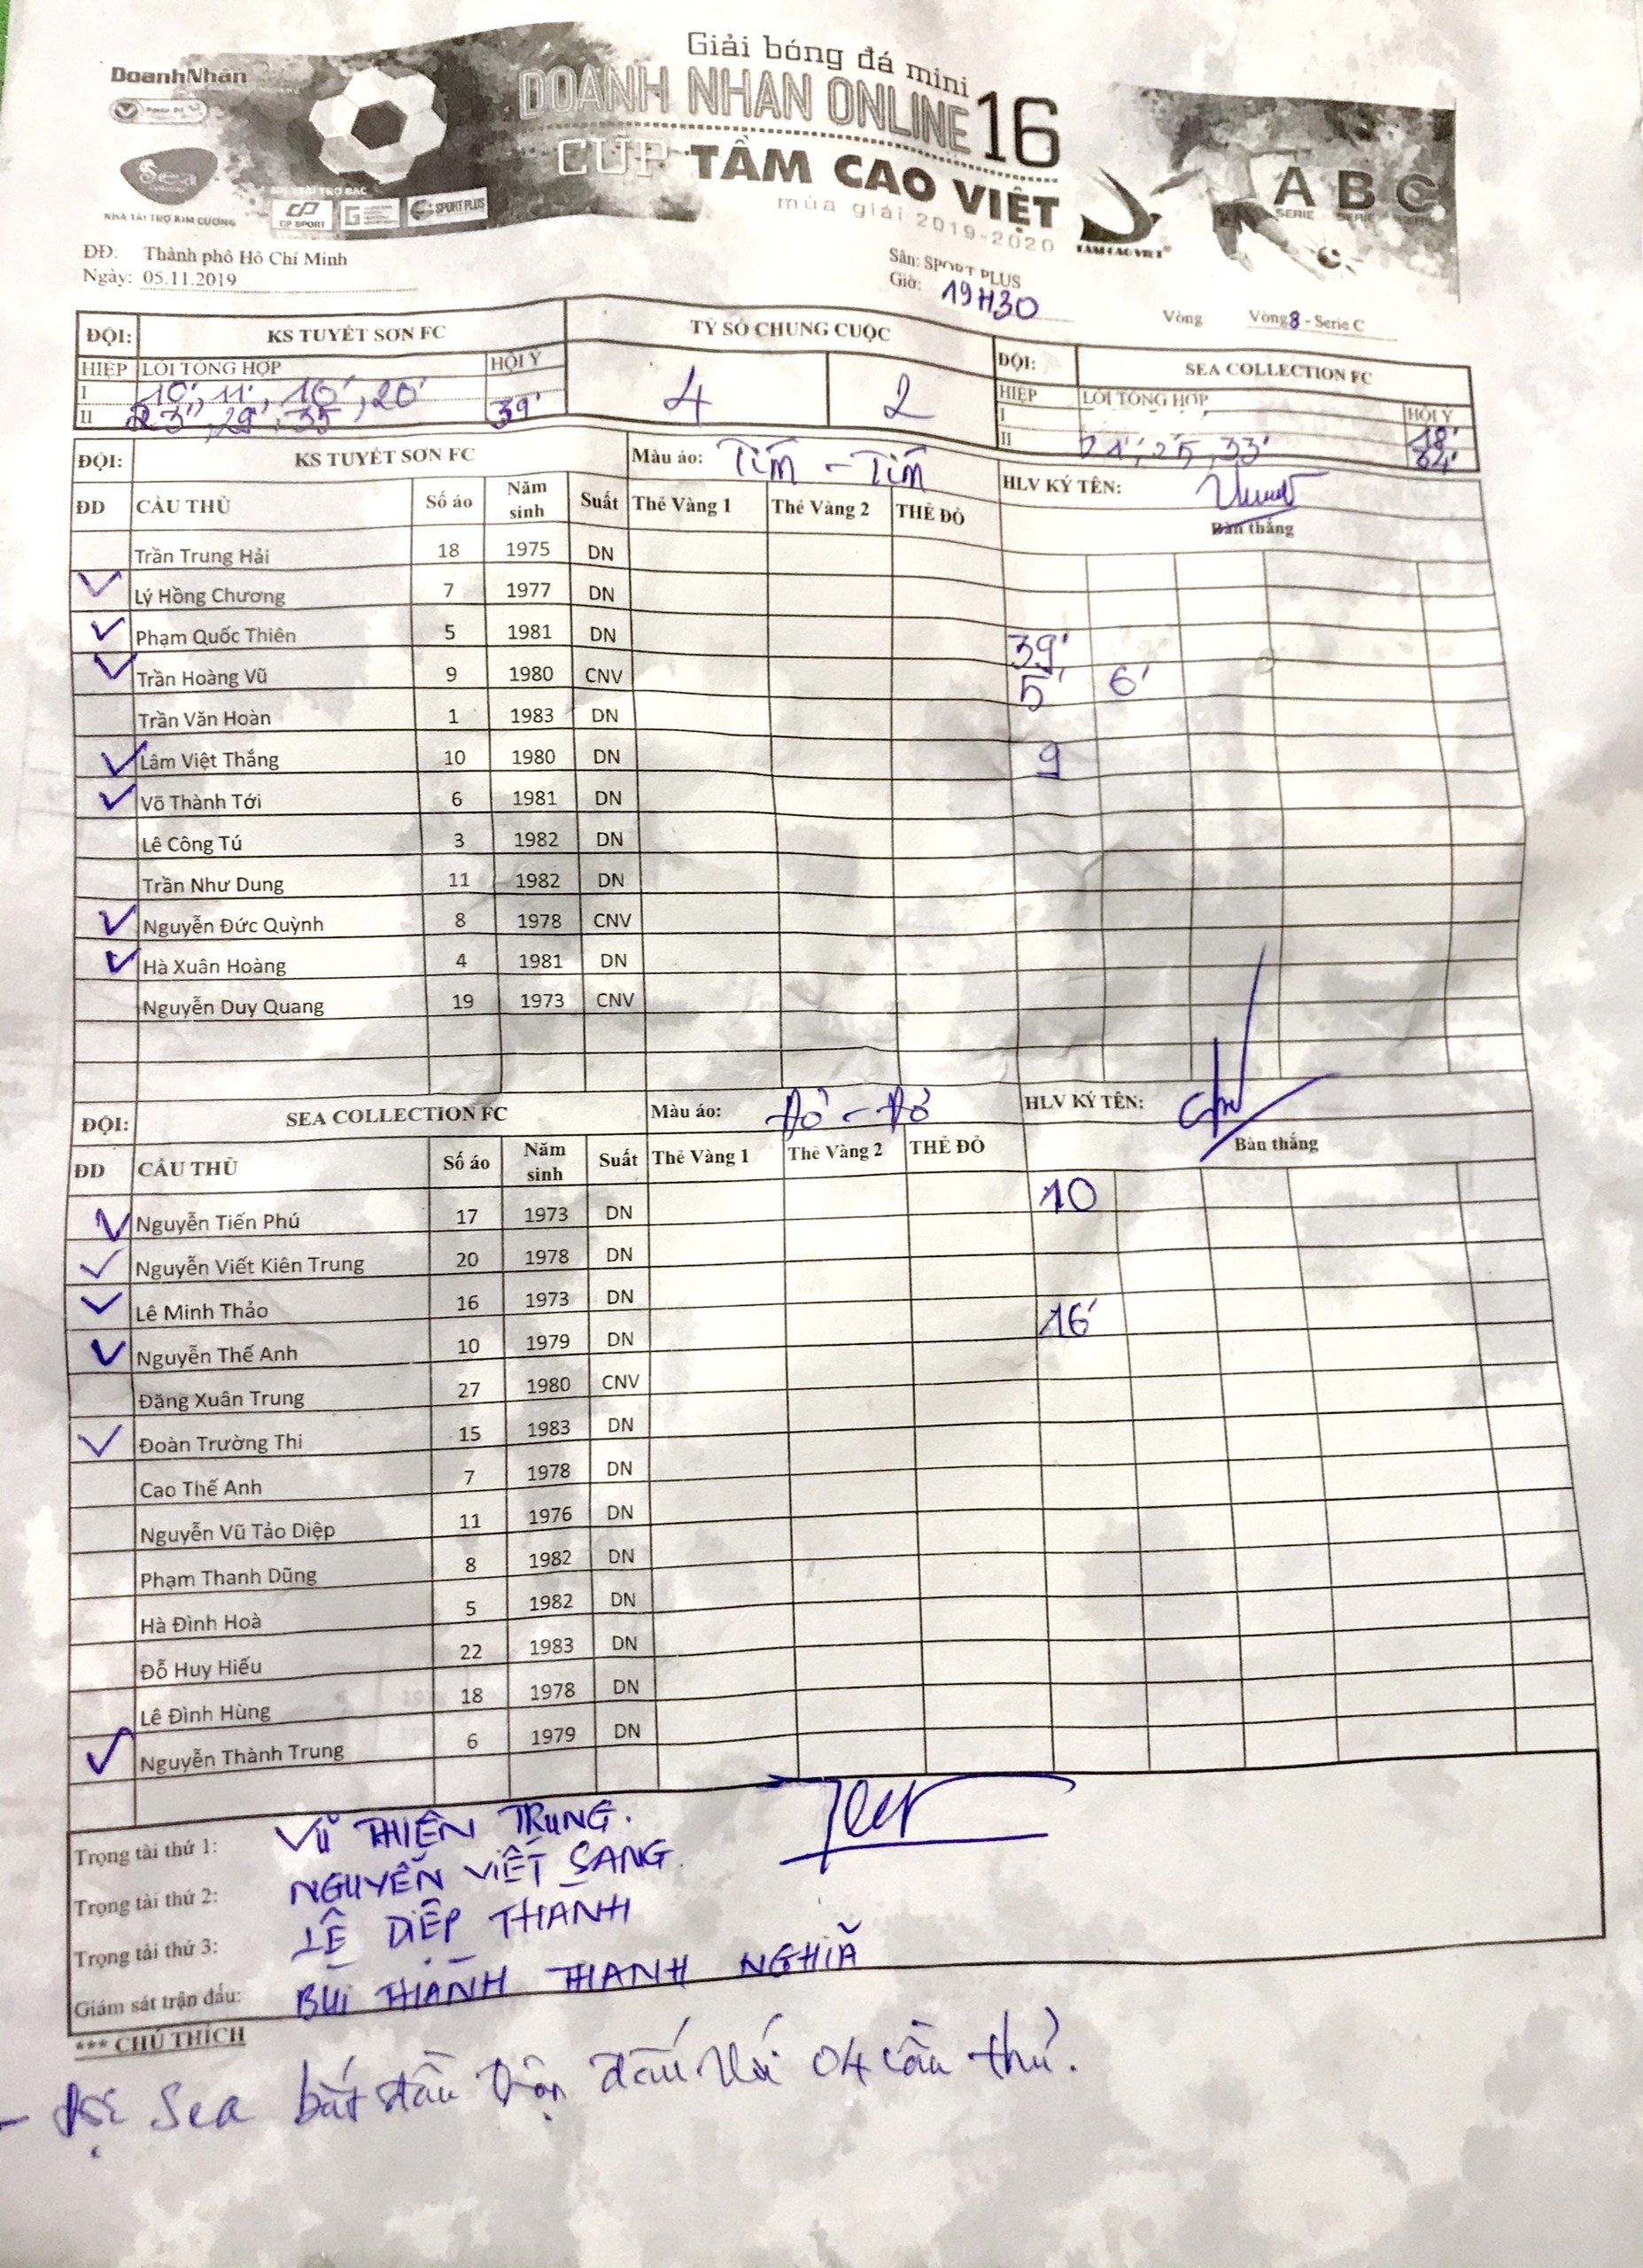 DoanhNhân
Giải bóng đá mini
DOANH NHAN ONLINE 16
CUP TẦM CAO VIỆT
mùa giải 2019-2020
Sea
NHÀ TÀI TRỢ KIM CƯƠNG
CP SPORT
SPORT PLUS
TAM CAO VIET
A B C
SERIE SERIE SERIE
ĐĐ: Thành phố Hồ Chí Minh
Ngày: 05.11.2019
Sân: SPORT PLUS
Giờ: 19H30
Vòng Vòng 8 - Serie C
ĐỘI: KS TUYẾT SƠN FC TỶ SỐ CHUNG CUỘC ĐỘI: SEA COLLECTION FC
HIỆP LỖI TỔNG HỢP HỘI Ý 4 2 HIỆP LỖI TỔNG HỢP HỘI Ý
I 10', 11', 16', 20' I 18'
II 23', 29', 35' 39' II 21', 25, 33'
ĐỘI: KS TUYẾT SƠN FC Màu áo: Tím - Tím HLV KÝ TÊN:
ĐD CẦU THỦ Số áo Năm sinh Suất Thẻ Vàng 1 Thẻ Vàng 2 THẺ ĐỎ Bàn thắng
Trần Trung Hải 18 1975 DN
Lý Hồng Chương 7 1977 DN
Phạm Quốc Thiên 5 1981 DN 39'
Trần Hoàng Vũ 9 1980 CNV 5' 6'
Trần Văn Hoàn 1 1983 DN
Lâm Việt Thắng 10 1980 DN 9
Võ Thành Tới 6 1981 DN
Lê Công Tú 3 1982 DN
Trần Như Dung 11 1982 DN
Nguyễn Đức Quỳnh 8 1978 CNV
Hà Xuân Hoàng 4 1981 DN
Nguyễn Duy Quang 19 1973 CNV
ĐỘI: SEA COLLECTION FC Màu áo: Đỏ - Đỏ HLV KÝ TÊN:
ĐD CẦU THỦ Số áo Năm sinh Suất Thẻ Vàng 1 Thẻ Vàng 2 THẺ ĐỎ Bàn thắng
Nguyễn Tiến Phú 17 1973 DN 10
Nguyễn Viết Kiên Trung 20 1978 DN
Lê Minh Thảo 16 1973 DN
Nguyễn Thế Anh 10 1979 DN 16'
Đặng Xuân Trung 27 1980 CNV
Đoàn Trường Thi 15 1983 DN
Cao Thế Anh 7 1978 DN
Nguyễn Vũ Tảo Diệp 11 1976 DN
Phạm Thanh Dũng 8 1982 DN
Hà Đình Hoà 5 1982 DN
Đỗ Huy Hiếu 22 1983 DN
Lê Đình Hùng 18 1978 DN
Nguyễn Thành Trung 6 1979 DN
Trọng tài thứ 1: VŨ THIÊN TRUNG.
Trọng tài thứ 2: NGUYỄN VIẾT SANG
Trọng tài thứ 3: LÊ DIỆP THANH
Giám sát trận đấu: BÙI THÀNH THANH NGHĨA
*** CHÚ THÍCH
- Đội Sea bắt đầu trận đấu với 04 cầu thủ.